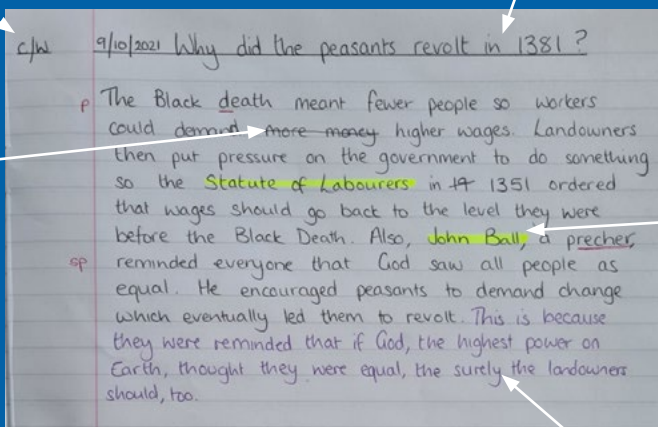 c/w 9/10/2021 Why did the peasants revolt in 1381?
p The Black death meant fewer people so workers
could demand more money higher wages. Landowners
then put pressure on the government to do something
so the Statute of Labourers in 14 1351 ordered
that wages should go back to the level they were
before the Black Death. Also, John Ball, a precher,
sp reminded everyone that God saw all people as
equal. He encouraged peasants to demand change
which eventually led them to revolt. This is because
they were reminded that if God, the highest power on
Earth, thought they were equal, the surely the landowners
should, too.